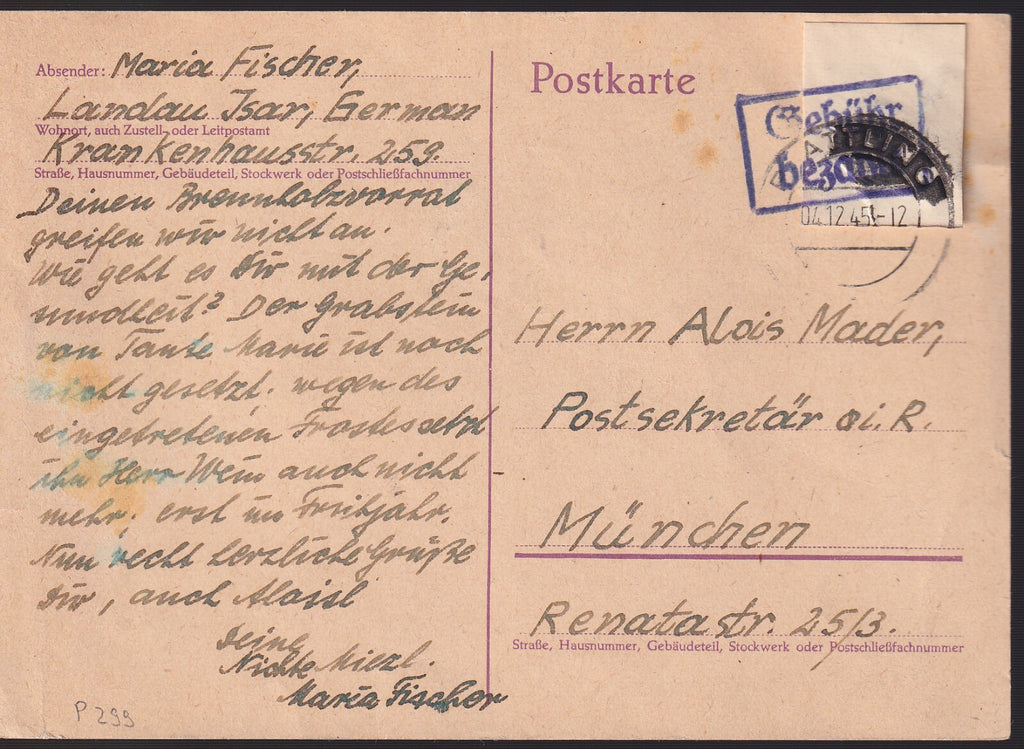 Absender: Maria Fischer,
Landau Isar, German
Wohnort, auch Zustell- oder Leitpostamt
Krankenhausstr. 259.
Straße, Hausnummer, Gebäudeteil, Stockwerk oder Postschließfachnummer
Deinen Brennholzvorrat
greifen wir nicht an.
Wie geht es Dir mit der Ge-
sundheit? Der Grabstein
von Tante Marie ist noch
nicht gesetzt. wegen des
eingetretenen Frostes setzt
ihn Herr Wein auch nicht
mehr, erst im Frühjahr.
Nun recht herzliche Grüße
Dir, auch Aloisl
Deine
Nichte Miezl.
Maria Fischer
P 299
Postkarte
Gebühr
bezahlt
PLATTLING
04.12.45.-12
Herrn Alois Mader,
Postsekretär a.i.R.
München
Renatastr. 25/3.
Straße, Hausnummer, Gebäudeteil, Stockwerk oder Postschließfachnummer